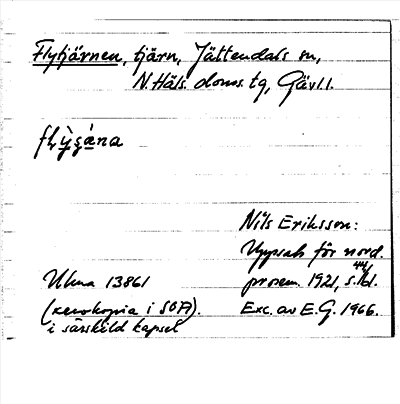 Flytjärnen, tjärn, Jättendals sn,
N. Häls. doms. tg, Gävl. l.
Nils Eriksson:
Uppsats för nord.
Ulma 13861
prosem. 1921, s.
(xerokopia i SOA).
Exc. av E.G. 1966.
i särskild kapsel